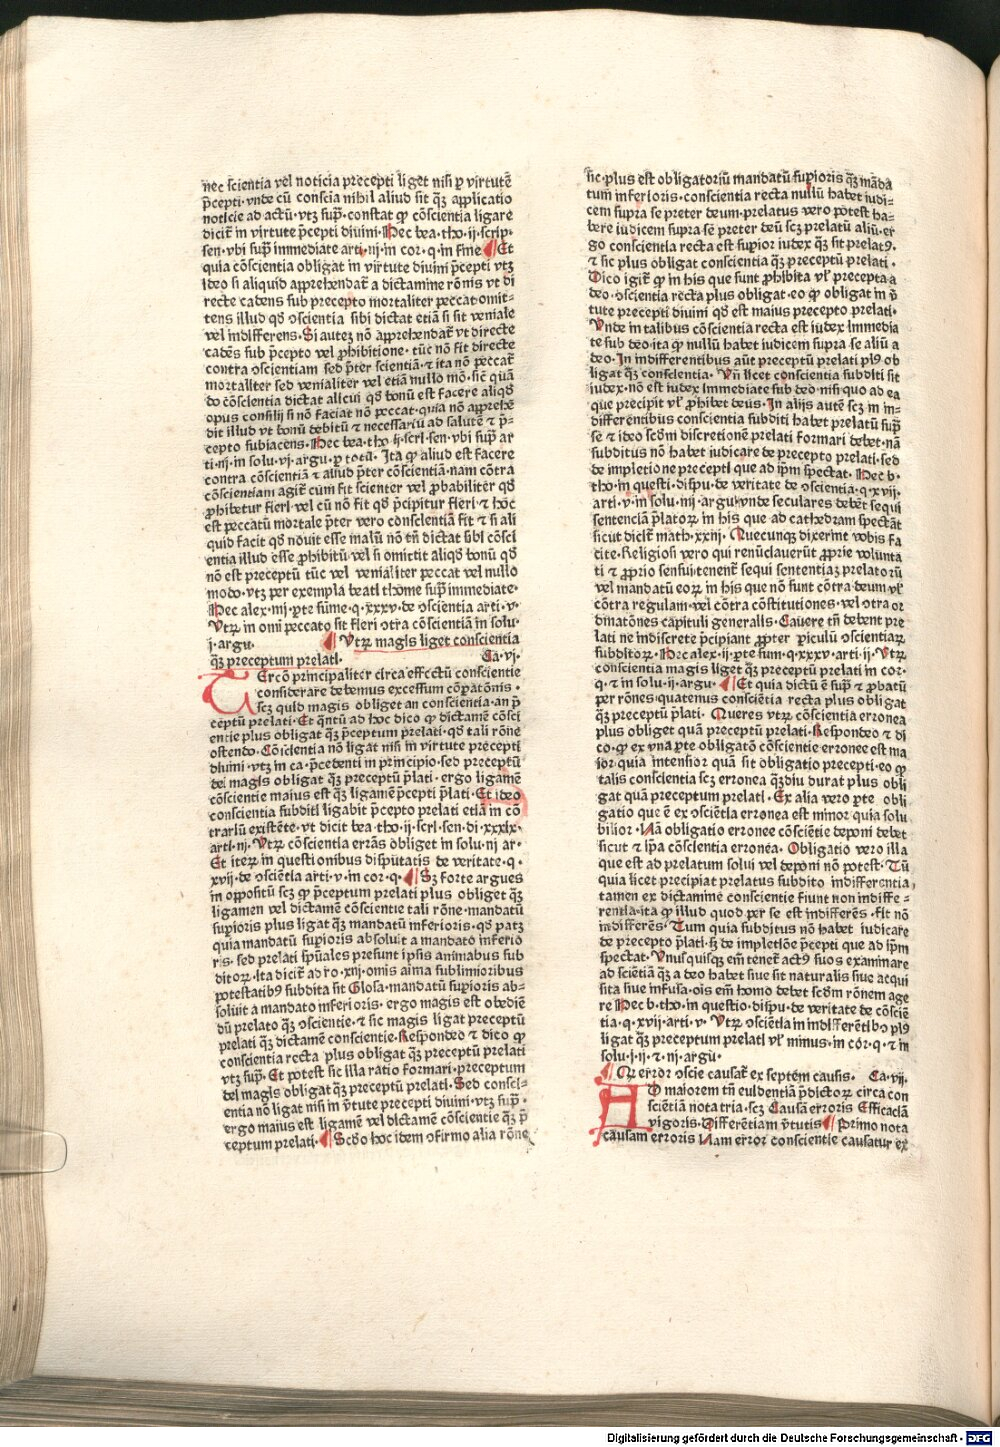 nec scientia vel noticia precepti liget nisi ꝑ virtutē
p̄cepti· vnde cū conscia nihil aliud sit qȝ applicatio
noticie ad actū· vtȝ sup̄· constat ꝙ cōscientia ligare
dicit̄ in virtute p̄cepti diuini· Hec bea· tho· ij· scrip·
sen· vbi sup̄ immediate arti· iij· in cor· q· in fine ¶ Et
quia cōscientia obligat in virtute diuini p̄cepti vtȝ
ideo si aliquid apprehendat̄ a dictamine rōnis vt di
recte cadens sub precepto mortaliter peccat omit⸗
tens illud qď ↄscientia sibi dictat etiā si sit veniale
vel indifferens· Si autez nō apprehendat̄ vt directe
cadēs sub p̄cepto vel ꝓhibitione· tūc nō fit directe
contra ↄscientiam sed p̄ter scientiā· ⁊ ita nō peccat̄
mortaliter sed venialiter vel etiā nullo mō· sic̄ quā
do cōscientia dictat alicui qď bonū est facere aliqď
opus consilij si nō faciat nō peccat· quia nō apprehē
dit illud vt bonū debitū ⁊ necessariū ad salutē ⁊ p̄⸗
cepto subiacens· Hec bea· tho· ij· scri· sen· vbi sup̄ ar
ti· iij· in solu· vj· argu· ꝑ totū· Ita ꝙ aliud est facere
contra cōscientiā ⁊ aliud p̄ter cōscientiā· nam cōtra
cōscientiam agit̄ cūm fit scienter vel ꝓbabiliter qď
ꝓhibetur fieri· vel cū nō fit qď p̄cipitur fieri· ⁊ hoc
est peccatū mortale p̄ter vero conscientiā fit ⁊ si ali
quid facit qď nouit esse malū nō tn̄ dictat sibi cōsci
entia illud esse ꝓhibitū vel si omittit aliqď bonū qď
nō est preceptū tūc vel venialiter peccat vel nullo
modo· vtȝ per exempla beati thome sup̄ immediate·
Hec alex· iiij· ꝑte sūme· q· xxxv· de ↄscientia arti· v·
Vtꝝ in omi peccato sit fieri ↄtra cōscientiā in solu·
j· argu· ¶ Vtꝝ magis liget conscientia
qȝ preceptum prelati· Ca· vj·
TErcō principaliter circa effectū conscientie
considerare debemus excessum cōꝑatōnis·
scȝ quid magis obliget an conscientia· an p̄
ceptū prelati· Et qn̄tū ad hoc dico ꝙ dictamē cōsci
entie plus obligat qȝ p̄ceptum prelati· qď tali rōne
ostendo· Cōscientia nō ligat nisi in virtute precepti
diuini· vtȝ in ca· p̄cedenti in principio· sed preceptū
dei magis obligat qȝ preceptū p̄lati· ergo ligamē
cōscientie maius est qȝ ligamē p̄cepti p̄lati· Et ideo
conscientia subditi ligabit p̄cepto prelati etiā in cō
trariū existēte· vt dicit bea· tho· ij· scri· sen· di· xxxix·
arti· iij· Vtꝝ cōscientia errās obliget in solu· iij· ar·
Et iterꝝ in questionibus disputatis de veritate· q·
xvij· de ↄsciētia arti· v· in cor· q· ¶ Sȝ forte argues
in oppositū scȝ ꝙ p̄ceptum prelati plus obliget qȝ
ligamen vel dictamē cōscientie tali rōne· mandatū
supioris plus ligat qȝ mandatū inferioris· qď patȝ
quia mandatū supioris absoluit a mandato inferio
ris· sed prelati sp̄uales presunt ipsis animabus sub
ditoꝝ· Ita dicit̄ ad ro· xiij· omis aima sublimioribus
potestatibꝰ subdita sit Glosa· mandatū supioris ab⸗
soluit a mandato inferioris· ergo magis est obediē
dū prelato qȝ ↄscientie· ⁊ sic magis ligat preceptū
prelati qȝ dictamē conscientie· Respondeo ⁊ dico ꝙ
conscientia recta plus obligat qȝ preceptū prelati
vtȝ sup̄· Et potest sic illa ratio formari· preceptum
dei magis obligat qȝ preceptū prelati· Sed consci⸗
entia nō ligat nisi in v̄tute precepti diuini· vtȝ sup̄·
ergo maius est ligamē vel dictamē cōscientie qȝ p̄
ceptum prelati· ¶ Scďo hoc idem ↄfirmo alia rōne
sic· plus est obligatoriū mandatū supioris qȝ mādā
tum inferioris· conscientia recta nullū habet iudi⸗
cem supra se preter deum· prelatus vero potest ha⸗
bere iudicem supra sē preter deū scȝ prelatū aliū· er
go conscientia recta est supior iudex qȝ sit prelatꝰ·
⁊ sic plus obligat conscientia qȝ preceptū prelati·
Dico igit̄ ꝙ in his que sunt ꝓhibita vl̄ precepta a
deo· ↄscientia recta plus obligat· eo ꝙ obligat in v̄
tute precepti diuini qď est maius precepto prelati·
Vnde in talibus cōscientia recta est iudex immedia
te sub deo· ita ꝙ nullū habet iudicem supra se aliū a
deo· In indifferentibus aūt preceptū prelati plꝰ ob
ligat qȝ conscientia· Vn̄ licet conscientia subditi sit
iudex· nō est iudex immediate sub deo· nisi quo ad ea
que precipit vl̄ ꝓhibet deus· In alijs autē scȝ in in⸗
differentibus conscientia subditi habet prelatū sup̄
se ⁊ ideo scďm discretionē prelati formari debet· nā
subditus nō habet iudicare de precepto prelati· sed
de impletione precepti que ad ip̄m spectat· Hec b·
tho· in questi· dispu· de veritate de ↄscientia· q· xvij·
arti· v· in solu· iij· argu· vnde seculares debēt sequi
sentenciā p̄latoꝝ in his que ad cathedram spectāt
sicut dicit̄ math· xxiij· Quecunqȝ dixerint vobis fa
cite· Religiosi vero qui renūciauerūt ꝓprie volunta
ti ⁊ ꝓprio sensui· tenent̄ sequi sententiaȝ prelatorū
vel mandatū eoꝝ in his que nō sunt cōtra deum vl̄
cōtra regulam· vel cōtra cōstitutiones· vel ↄtra or
dinatōnes capituli generalis· Cauere tn̄ debent pre
lati ne indiscrete p̄cipiant ꝓpter ꝑiculū ↄscientiaꝝ
subditoꝝ· Hec alex· ij· ꝑte sum· q· xxxv· arti· ij· Vtꝝ
conscientia magis liget qȝ preceptū prelati in cor·
q· ⁊ in solu· ij· argu· ¶ Et quia dictū ē sup̄ ⁊ ꝓbatū
per rōnes· quatenus consciētia recta plus obligat
qȝ preceptū p̄lati· Queres vtꝝ cōscientia erronea
plus obliget quā preceptū prelati· Respondeo ⁊ di
co· ꝙ ex vna ꝑte obligatō cōscientie erronee est ma
ior· quia intensior quā sit obligatio precepti· eo ꝙ
talis conscientia scȝ erronea qȝdiu durat plus obli
gat quā preceptum prelati· Ex alia vero ꝑte obli
gatio que ē ex ↄsciētia erronea est minor quia solu
bilior· Nā obligatio erronee cōsciētie deponi debet
sicut ⁊ ip̄a cōscientia erronea· Obligatio vero illa
que est ad prelatum solui vel deponi nō potest· Tū
quia licet precipiat prelatus subdito indifferentia,
tamen ex dictamine conscientie fiunt non indiffe⸗
rentia· ita ꝙ illud quod per se est indifferēs· fit nō
indifferēs· Tum quia subditus nō habet iudicare
de precepto p̄lati· sȝ de impletiōe p̄cepti que ad ip̄m
spectat· Vnusquisqȝ em̄ tenet̄ actꝰ suos examinare
ad sciētiā qȝ a deo habet siue sit naturalis siue acqui
sita siue infusa· ois em̄ homo debet scďm rōnem age
re Hec b· tho· in questio· dispu· de veritate de cōsciē
tia· q· xvij· arti· v· Vtꝝ ↄsciētia in indifferētibꝰ plꝰ
ligat qȝ preceptum prelati vl̄ minus· in cor· q· ⁊ in
solu· j· ij· ⁊ iij· argu·
¶ Qꝫ error ↄscie causat̄ ex septem causis· Ca· vij·
AD maiorem tn̄ euidentiā p̄dictoꝝ circa con
sciētiā nota tria· scȝ Causā erroris Efficaciā
vigoris· Differētiam v̄tutis ¶ Primo nota
causam erroris Nam error conscientie causatur ex
Digitalisierung gefördert durch die Deutsche Forschungsgemeinschaft · DFG